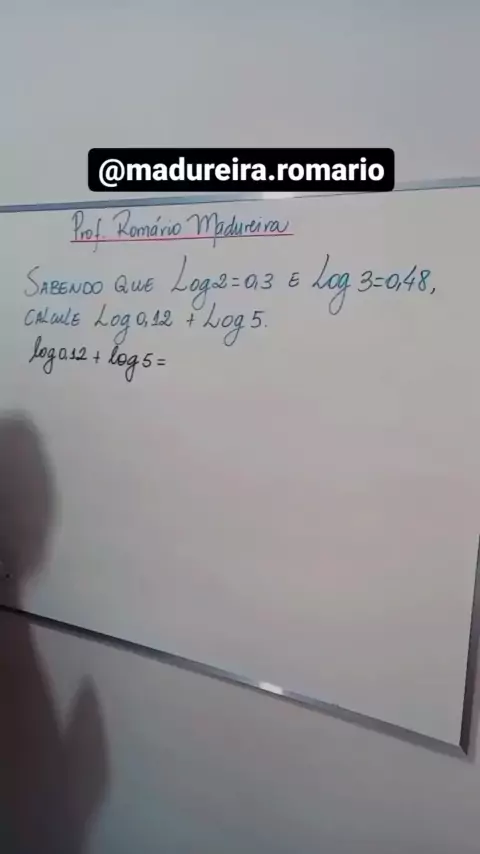 @madureira.romario
Prof. Romário Madureira
SABENDO QUE Log2=0,3 E Log 3=0,48,
CALCULE Log 0,12 + Log 5.
log 0,12 + log 5 =